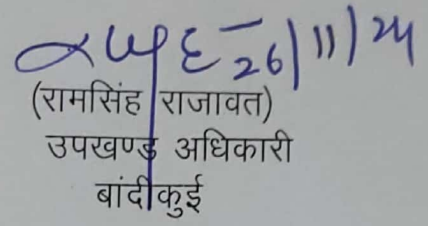 26/11/24
(रामसिंह राजावत)
उपखण्ड अधिकारी
बांदीकुई